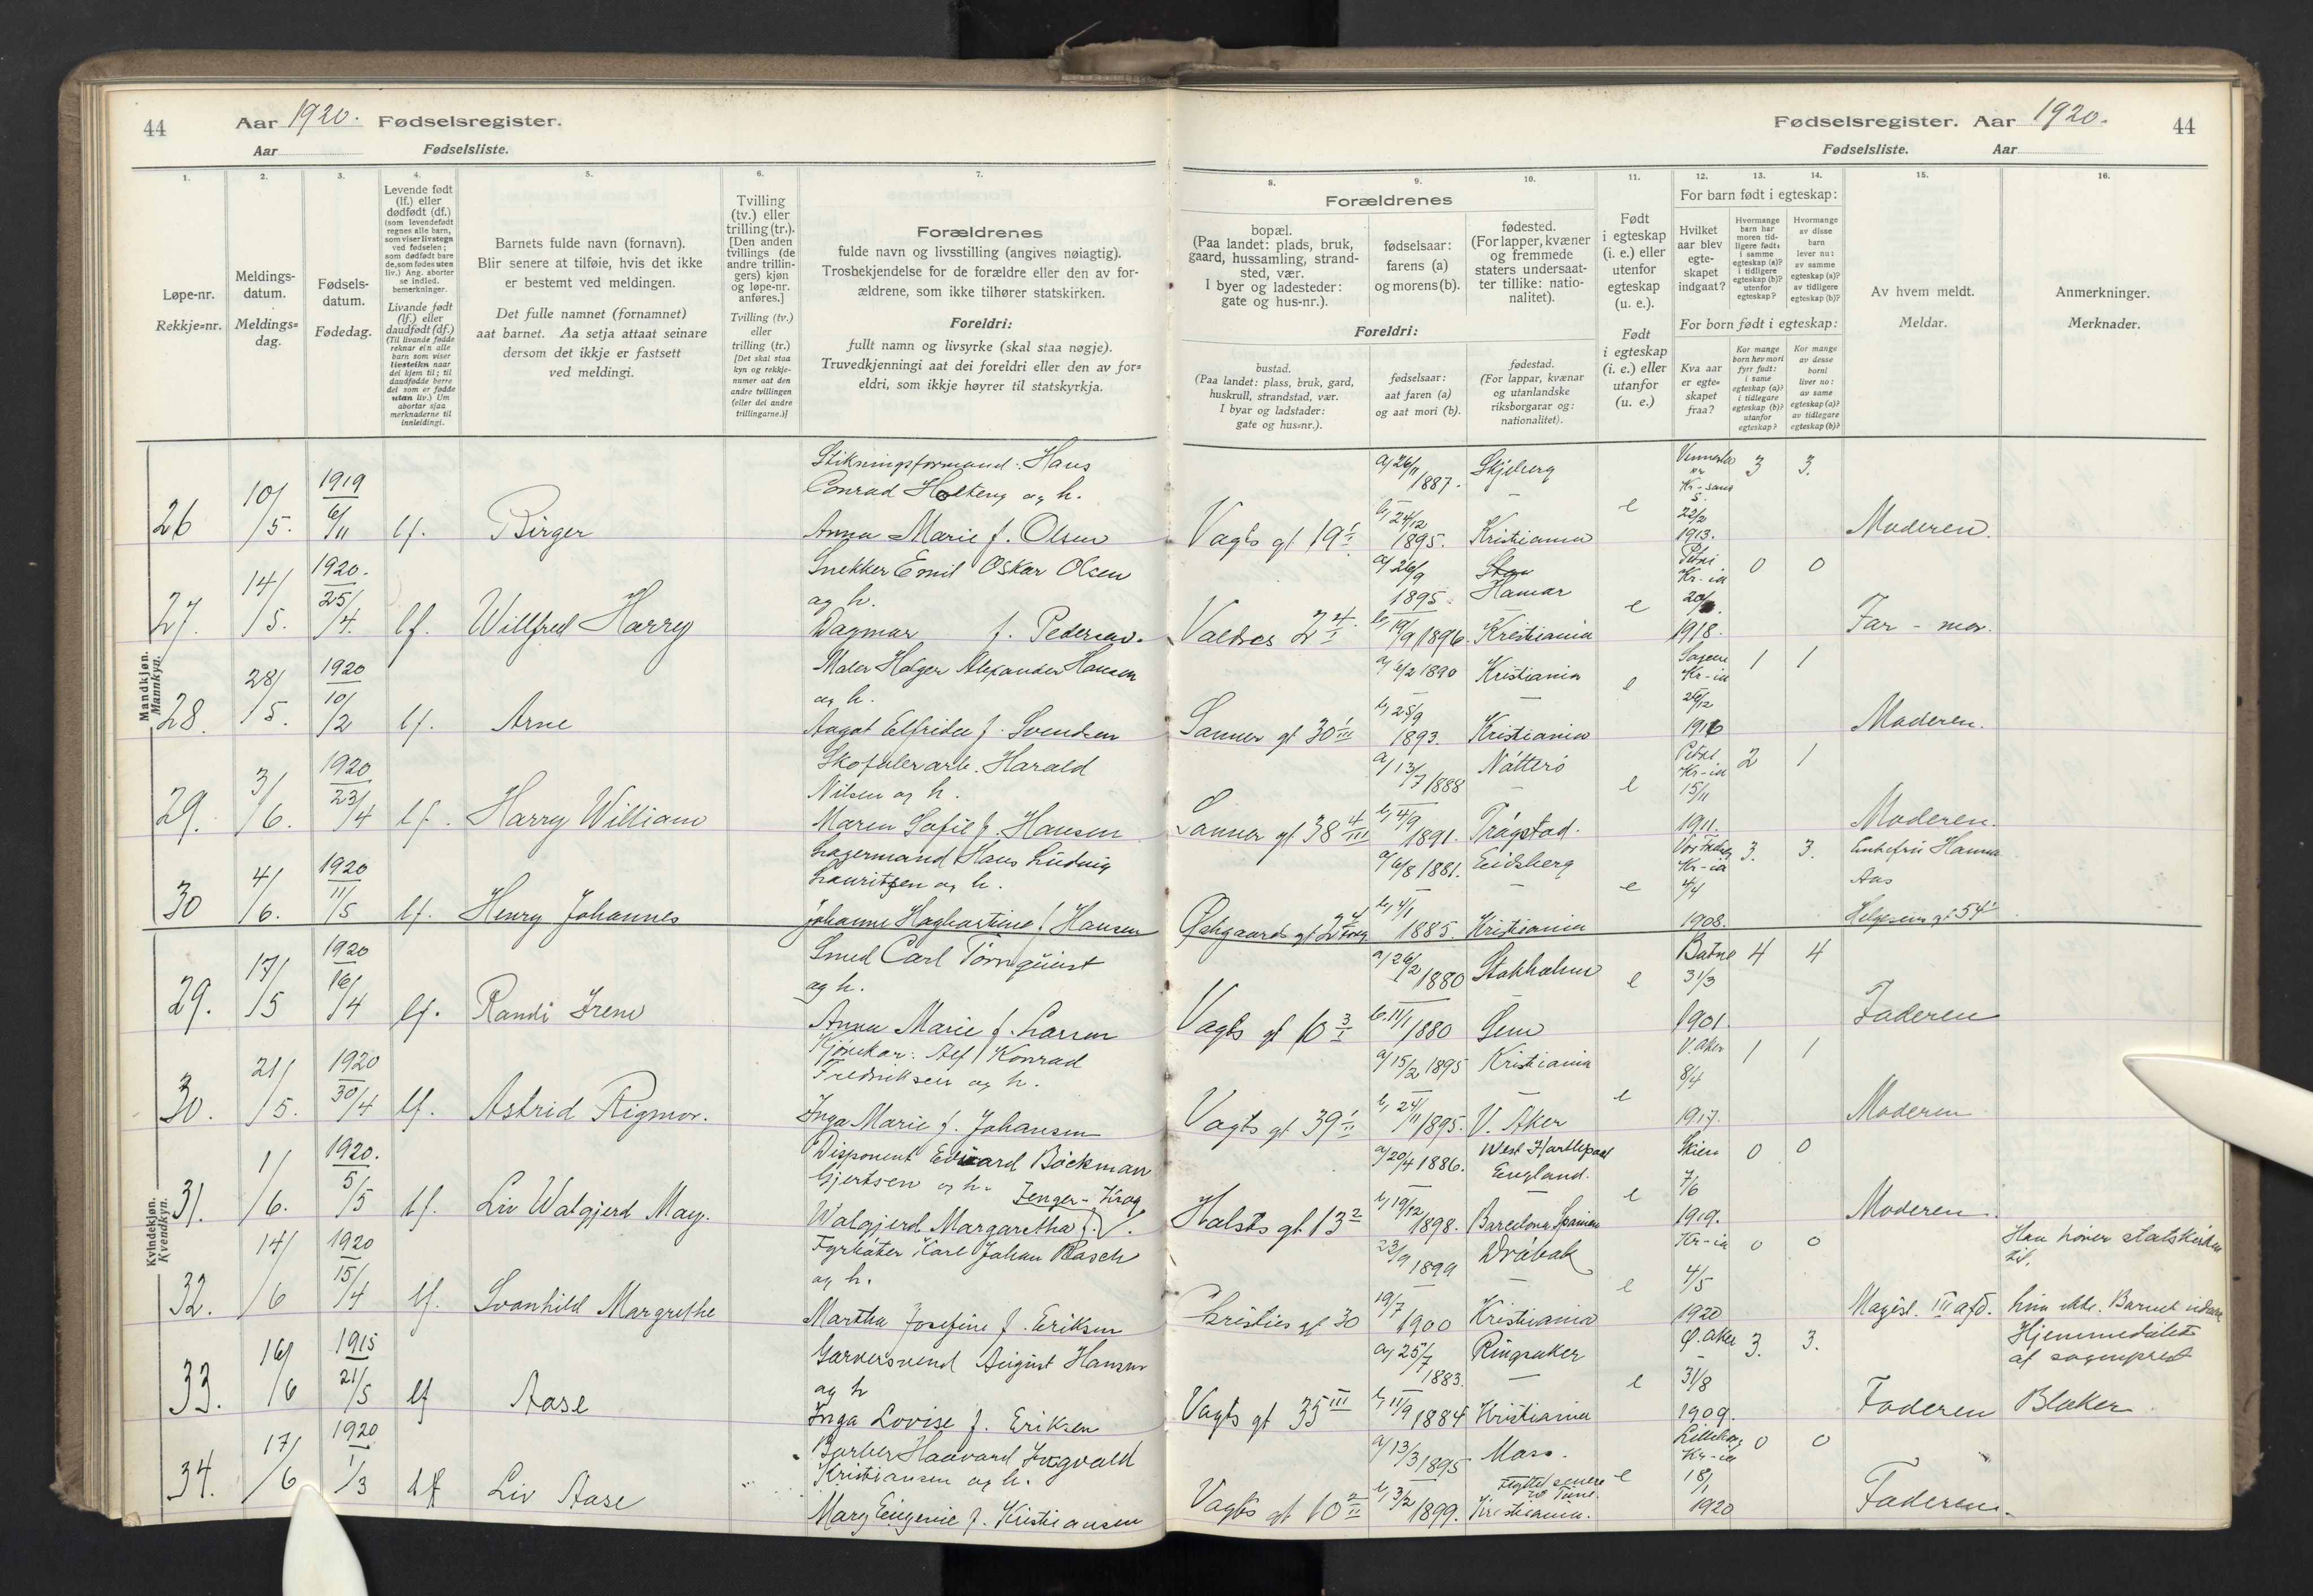 44
Aar 1920. Fødselsregister.
Aar
Fødselsliste.
1.
2.
3.
4.
5.
6.
7.
Løpe-nr.
Rekkje=nr.
Meldings-
datum.
Meldings=
dag.
Fødsels-
datum.
Fødedag.
Levende født
(lf.) eller
dødfødt (df.)
(som levendefødt
regnes alle barn,
som viser livstegn
ved fødselen;
som dødfødt bare
de, som fødes uten
liv.) Ang. aborter
se indled.
bemerkninger.
Livande født
(lf.) eller
daudfødt (df.)
(Til livande fødde
reknar ein alle
barn som viser
livsteikn naar
dei kjem til; til
daudfødde berre
dei som er fødde
utan liv.) Um
abortar sjaa
merknaderne til
innleidingi.
Barnets fulde navn (fornavn).
Blir senere at tilføie, hvis det ikke
er bestemt ved meldingen.
Det fulle namnet (fornamnet)
aat barnet. Aa setja attaat seinare
dersom det ikkje er fastsett
ved meldingi.
Tvilling
(tv.) eller
trilling (tr.).
[Den anden
tvillings (de
andre trillin-
gers) kjøn
og løpe-nr.
anføres.]
Tvilling (tv.)
eller
trilling (tr.)
[Det skal staa
kyn og rekkje-
nummer aat den
andre tvillingen
(eller dei andre
trillingarne.)]
Forældrenes
fulde navn og livsstilling (angives nøiagtig).
Trosbekjendelse for de forældre eller den av for-
ældrene, som ikke tilhører statskirken.
Foreldri:
fullt namn og livsyrke (skal staa nøgje).
Truvedkjenningi aat dei foreldri eller den av for=
eldri, som ikkje høyrer til statskyrkja.
Mandkjøn.
Mannkyn.
26 10/5. 1919 6/11 lf. Birger
Stikningsformand: Hans
Conrad Holteng og h.
Anna Marie f. Olsen
27. 14/5. 1920. 25/4. lf. Willfred Harry
Snekker Emil Oskar Olsen
og h.
Dagmar f. Pedersen.
28. 28/5. 1920 10/2 lf. Arne
Maler Holger Alexander Hansen
og h.
Aagot Elfride f. Svendsen
29. 3/6. 1920 23/4 lf. Harry William
Skofabrarb. Harald
Nilsen og h.
Maren Sofie f. Hansen
30 4/6. 1920 11/5 lf. Henry Johannes
Lagermand Hans Ludvig
Lauritzen og h.
Johanne Hagbartine f. Hansen
Kvindekjøn.
Kvendkyn.
29. 17/5 1920 16/4 lf. Randi Irene
Smed Carl Törnquist
og h.
Anna Marie f. Larsen
30. 21/5. 1920 30/4 lf. Astrid Rigmor.
Kjørekar: Alf Konrad
Fredriksen og h.
Inga Marie f. Johansen
31. 1/6. 1920. 5/5 lf. Liv Walgjerd May.
Disponent Edvard Böckman
Gjertsen og h. Zenger-Krog
Walgjerd Margaretha f.
32. 14/6 1920 15/4 lf. Svanhild Margrethe
Fyrbøter Karl Johan Rasch
og h.
Martha Josefine f. Eriksen
33. 16/6 1915 21/5 lf Aase
Garversvend August Hansen
og h
Inga Lovise f. Eriksen
34. 17/6 1920 1/3 lf Liv Aase
Barber Haavard Ingvald
Kristiansen og h.
Mary Eugenie f. Kristiansen
Fødselsregister. Aar 1920.
44
Fødselsliste.
Aar
8.
9.
10.
11.
12.
13.
14.
15.
16.
Forældrenes
bopæl.
(Paa landet: plads, bruk,
gaard, hussamling, strand-
sted, vær.
I byer og ladesteder:
gate og hus-nr.).
fødselsaar:
farens (a)
og morens (b).
fødested.
(For lapper, kvæner
og fremmede
staters undersaat-
ter tillike: natio-
nalitet).
Foreldri:
bustad.
(Paa landet: plass, bruk, gard,
huskrull, strandstad, vær.
I byar og ladstader:
gate og hus=nr.).
fødselsaar:
aat faren (a)
og aat mori (b).
fødestad.
(For lappar, kvænar
og utanlandske
riksborgarar og:
nationalitet).
Født
i egteskap
(i. e.) eller
utenfor
egteskap
(u. e.).
Født
i egteskap
(i. e.) eller
utanfor
(u. e.)
For barn født i egteskap:
Hvilket
aar blev
egte-
skapet
indgaat?
Hvormange
barn har
moren tid-
ligere født:
i samme
egteskap (a)?
i tidligere
egteskap (b)?
utenfor
egteskap?
Hvormange
av disse
barn
lever nu:
av samme
egteskap (a)?
av tidligere
egteskap (b)?
For born født i egteskap:
Kva aar
er egte=
skapet
fraa?
Kor mange
born hev mori
fyrr født:
i same
egteskap (a)?
i tidlegare
egteskap (b)?
utanfor
egteskap?
Kor mange
av desse
borni
liver no:
av same
egteskap (a)?
av tidlegare
egteskap (b)?
Av hvem meldt.
Meldar.
Anmerkninger.
Merknader.
Vagts gt 19 1/I a/ 26/11 1887. Skjeberg
b/ 24/12 1895. Kristiania e
Kr-sand S. 22/2 1913. 3 3. Moderen.
Valdres 2 4/I a/ 26/9 1895. Hamar
b/ 19/9 1896. Kristiania e
Petri Kr-ia 1918. 0 0 Far - mor.
Sanner gt 30 1/III a/ 6/2 1890 Kristiania
b/ 25/9 1893. Kristiania e
Sagene Kr-ia 26/12 1916 1 1 Moderen.
Sanner gt 38 4/III a/ 13/7 1888 Nötterö
b/ 4/9 1891. Trögstad. e
Petri Kr-ia 15/11 1911. 2 1 Moderen.
a/ 6/8 1881. Eidsberg
b/ 4/1 1885. Kristiania e
Kr-ia 4/4 1908. 3. 3. Enkefru Hanna
Aas
Helgesens gt 54
Vagts gt 10 3/I a/ 26/2 1880 Stokholm
b. 11/1 1880 Sem e
Batne 31/3 1901. 4 4 Faderen
Vagts gt 39 1/II a/ 15/2 1895 Kristiania
b/ 24/11 1895. V. Aker e
V. Aker 8/4 1917. 1 1 Moderen
Halsts gt 13 2 a/ 20/4 1886. West Hartlepool
England.
b/ 19/12 1898. Barcelona Spanien e
Skien 7/6 1919. 0 0 Moderen.
Christies gt 30 23/9 1899 Dröbak
19/7 1900 Kristiania e
Kr-ia 4/5 1920 0 0 Magist. III afd.
Han hører statskirken
til,
hun ikke. Barnet
Vagts gt 35 III a/ 25/7 1883. Ringsaker
b/ 11/9 1884 Kristiania e
Ø. Aker 31/8 1909. 3. 3. Faderen
Hjemmedøbt
af sogneprest
Blaker
Vagts gt 10 2/II a/ 13/3 1895 Moss.
Flyttet senere
til Tune.
b/ 3/2 1899. Kristiania. e
Kr-ia 18/1 1920 0 0 Faderen.